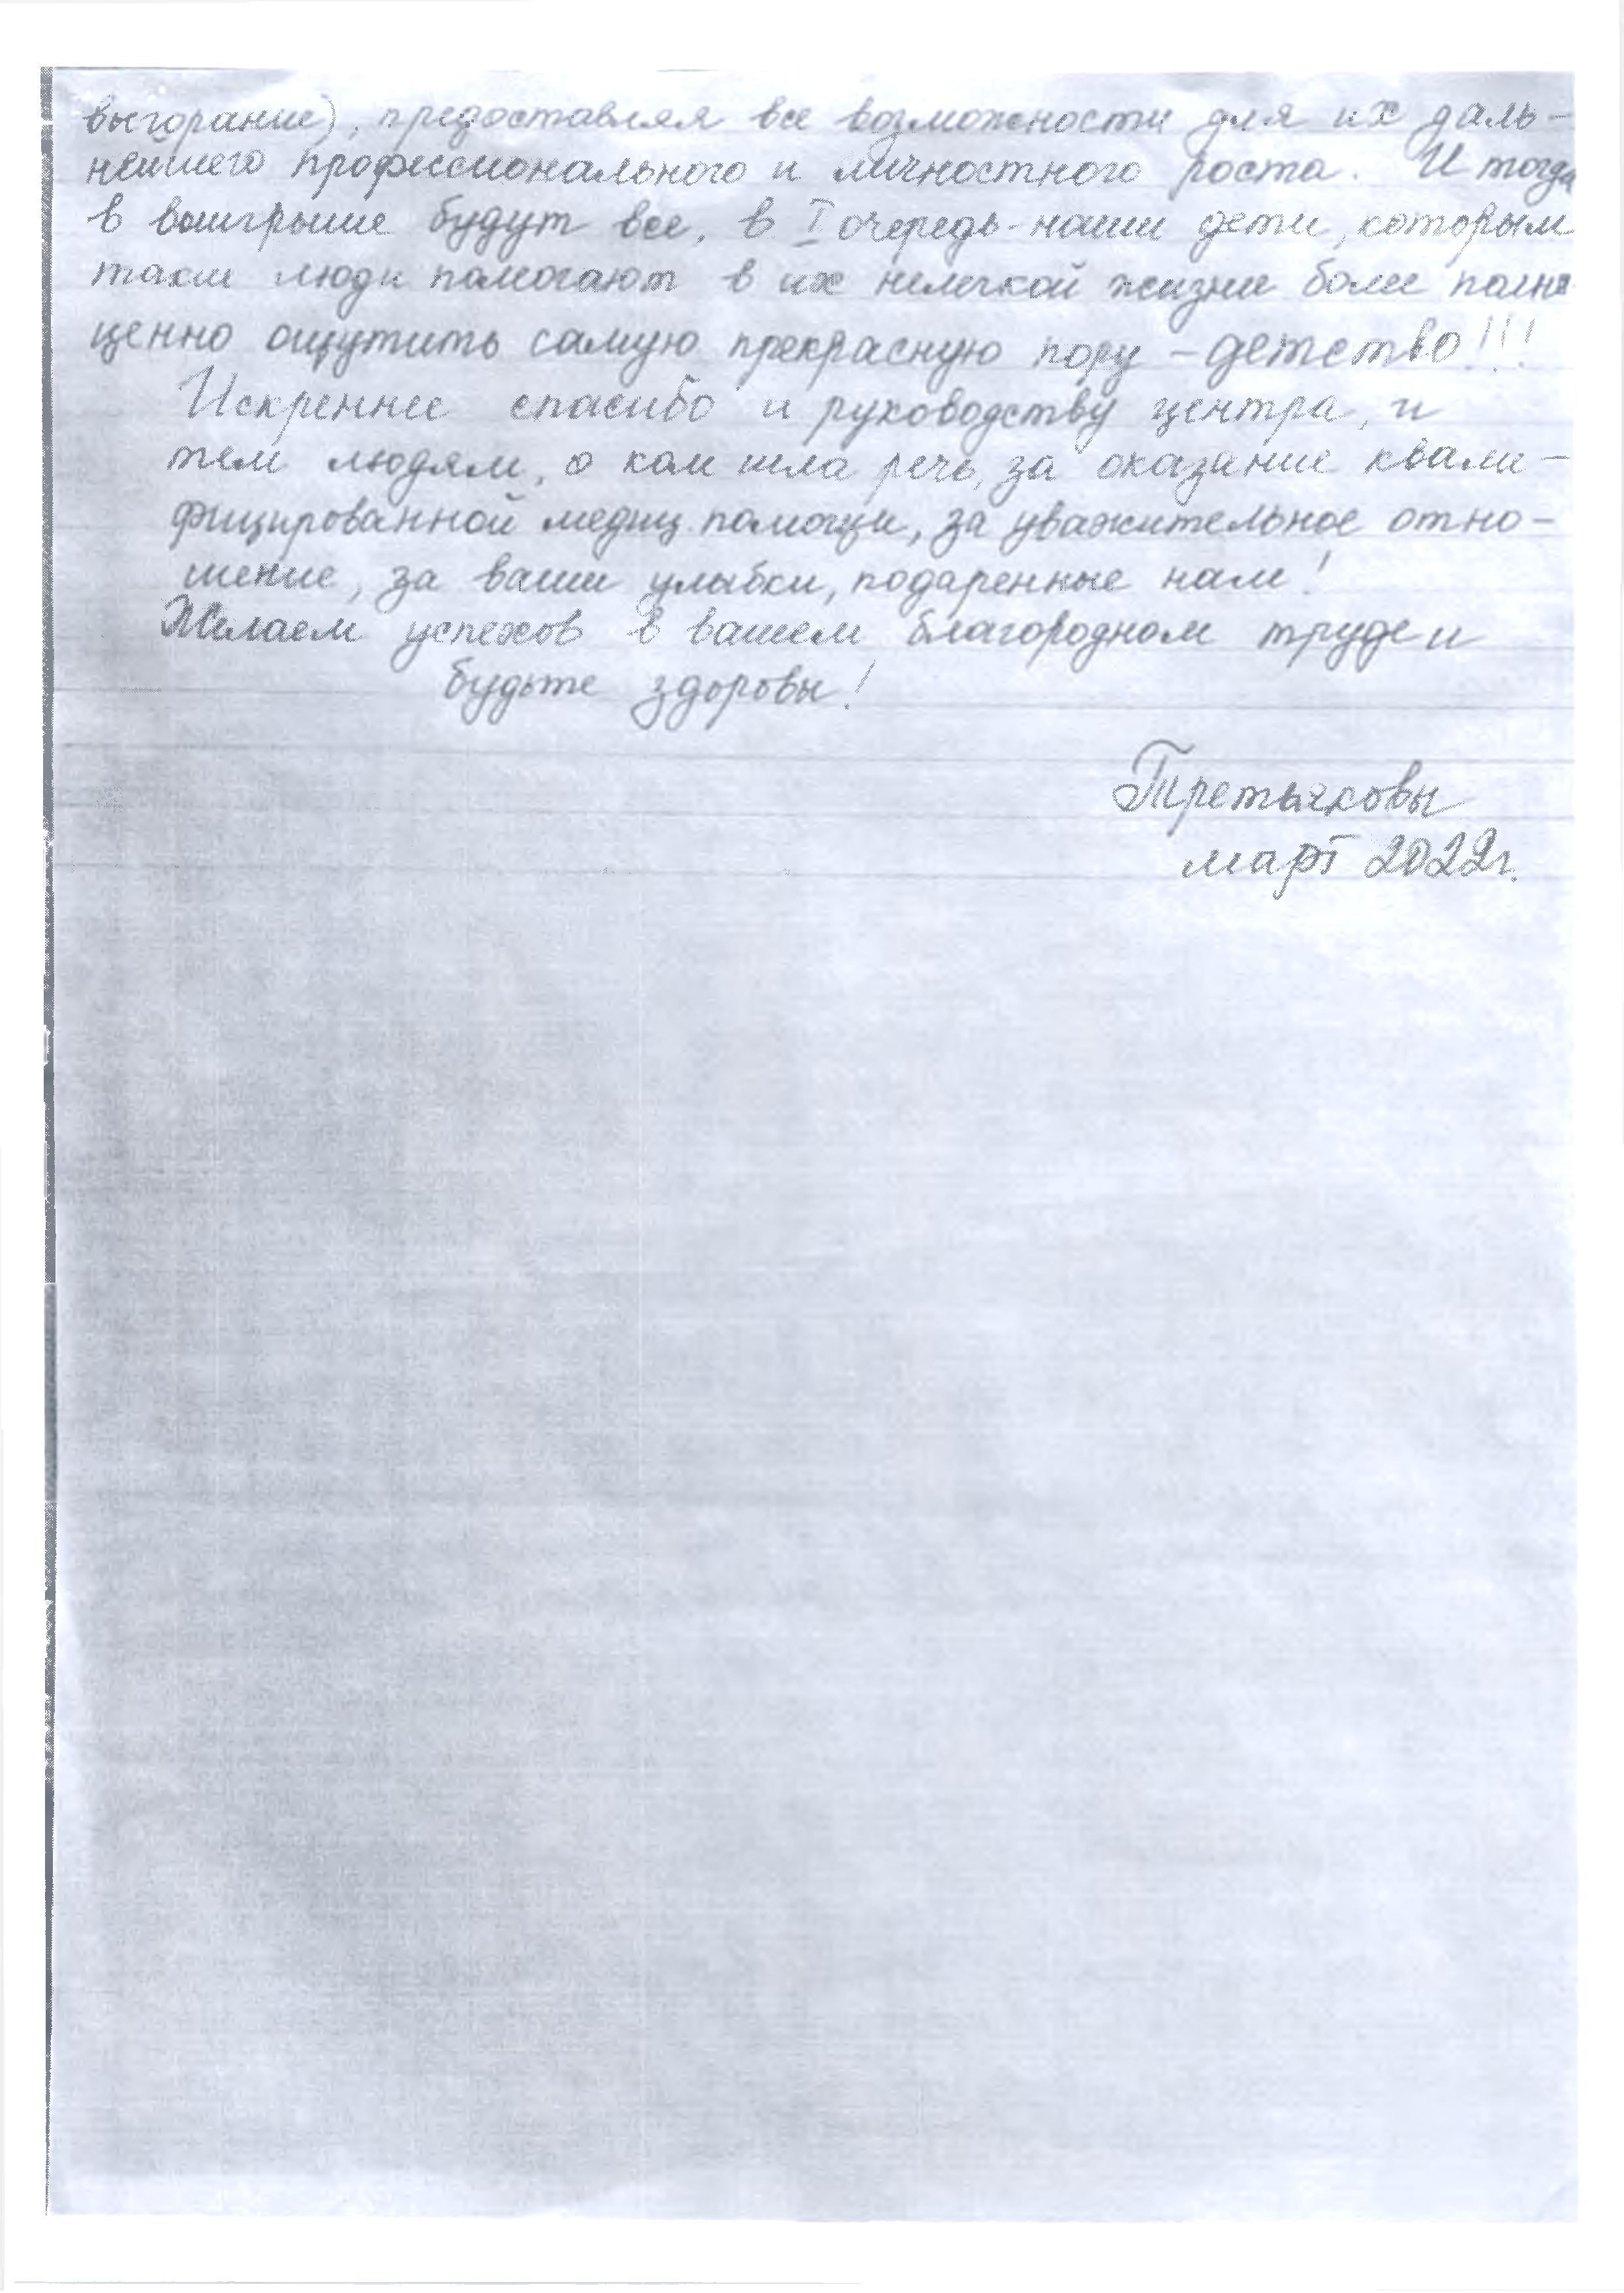 выгорание), предоставляя все возможности для их даль-
нейшего профессионального и личностного роста. И тогда
в выигрыше будут все, в I очередь-наши дети, которым
такие люди помогают в их нелегкой жизни более полно
ценно ощутить самую прекрасную пору - детство!!!
Искреннее спасибо и руководству центра, и
тем людям, о ком шла речь, за оказание квали-
фицированной медиц. помощи, за уважительное отно-
шение, за ваши улыбки, подаренные нам!
Желаем успехов в вашем благородном труде и
будьте здоровы!
Третьяковы
март 2022г.